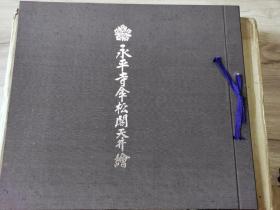 永平寺傘松閣天井繪